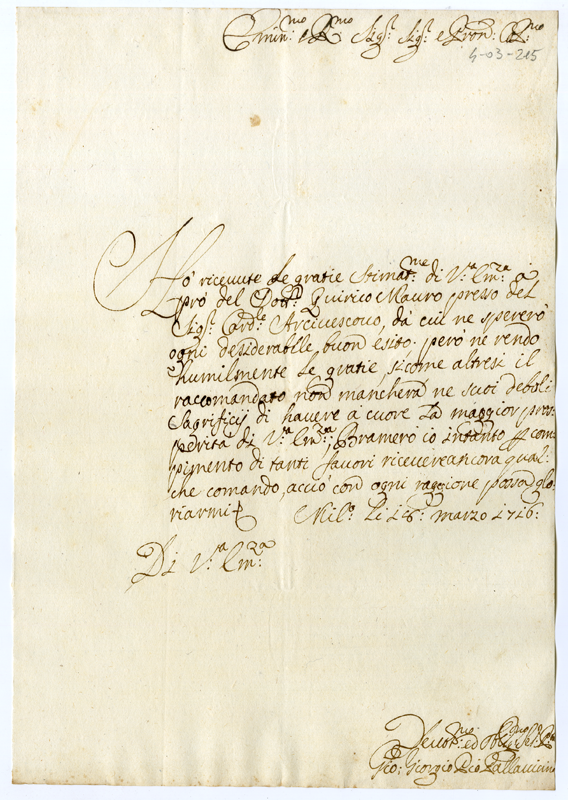 Emin:mo e Rmo Sig:r Sig:r e Pron: 
4-03-215
Hò riceuute le gratie stimat:me di V:ra Em:za à
prò del Dott:r Quirico Mauro presso del
Sig:r Card:le Arciuescouo, dà cui ne spererò
ogni desiderabille buon esito. però ne rendo
humilmente le gratie, sicome altresi il
raccomandato non mancherà ne suoi deboli
Sagrificij di hauere a cuore la maggior pros:
perità di V:ra Em:za Bramerò io intanto p com:
pimento di tanti fauori riceuere ancora qual:
che comando, acciò con ogni raggione possa glo:
riarmi Mil:o li 18: marzo 1716:
Di V:ra Em:za
Deuot:mo ed Obl:mo
Gio: Giorgio Pallauicino